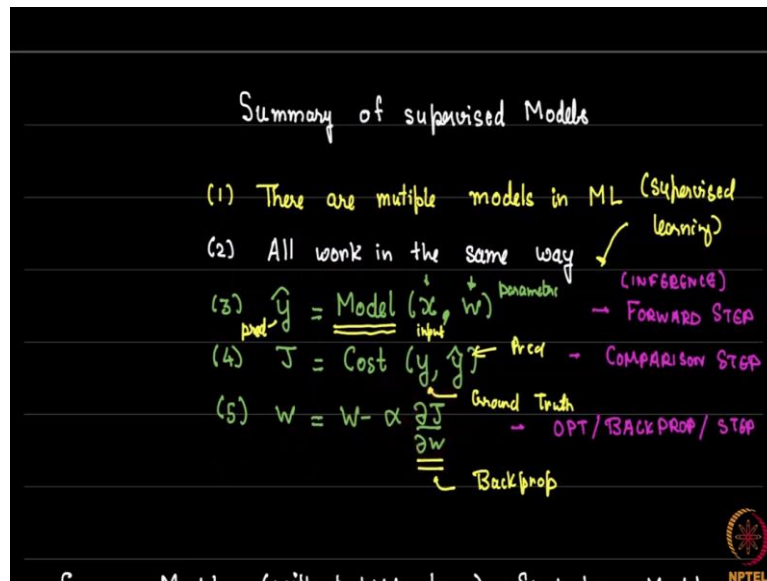 Summary of supervised Models
(1) There are mutiple models in ML (supervised
learning)
(2) All work in the same way
(INFERENCE)
(3) ŷ = Model (x, w) parameters → FORWARD STEP
pred input
(4) J = Cost (y, ŷ) ← Pred - COMPARISON STEP
Ground Truth
(5) W = W - α ∂J/∂w → OPT/BACKPROP/STEP
Backprop
NPTEL